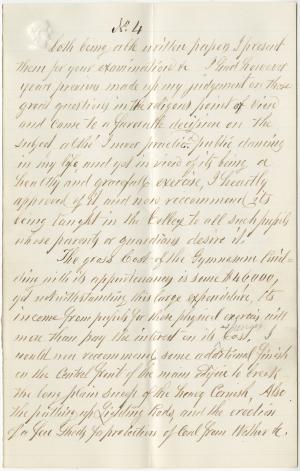 No 4
both being able written papers I present
them for your examination &c I had however
years previous made up my judgement on those
great questions in the religious point of view
and came to a favorable decision on the
subject altho' I never practiced public dancing
in my life and yet in view of its being a
healthy and graceful exercise, I heartily
approved of it and now recommend its
being taught in the College to all such pupils
whose parents or guardians desire it.
The gross Cost of the Gymnasium Build-
ding with its appurtenances is some $46,000,
yet notwithstanding this large expenditure, its
income from pupils for these physical exercises will
more than pay the interest on its cost. I
would now recommend some additional finish
on the Central front of the main Edifice to break
the long plain sweep of the heavy Cornish, Also
the putting up Lightning Rods, and the erection
of a few Sheds for protection of Coal from Weather &c.